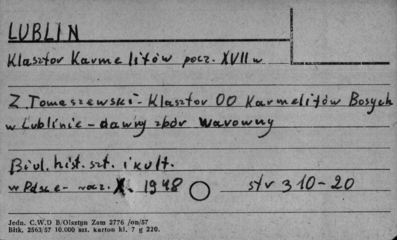 LUBLIN
Klasztor Karmelitów pocz. XVII w
Z Tomaszewski - Klasztor OO Karmelitów Bosych
w Lublinie - dawny zbór warowny
Biul. hist. szt. i kult.
w Polsce - rocz. X. 1948 str 310-20
Jedn. C.W.D B/Olsztyn Zam 2776 /on/57
Błtk. 2563/57 10.000 szt. karton kl. 7 g 220.